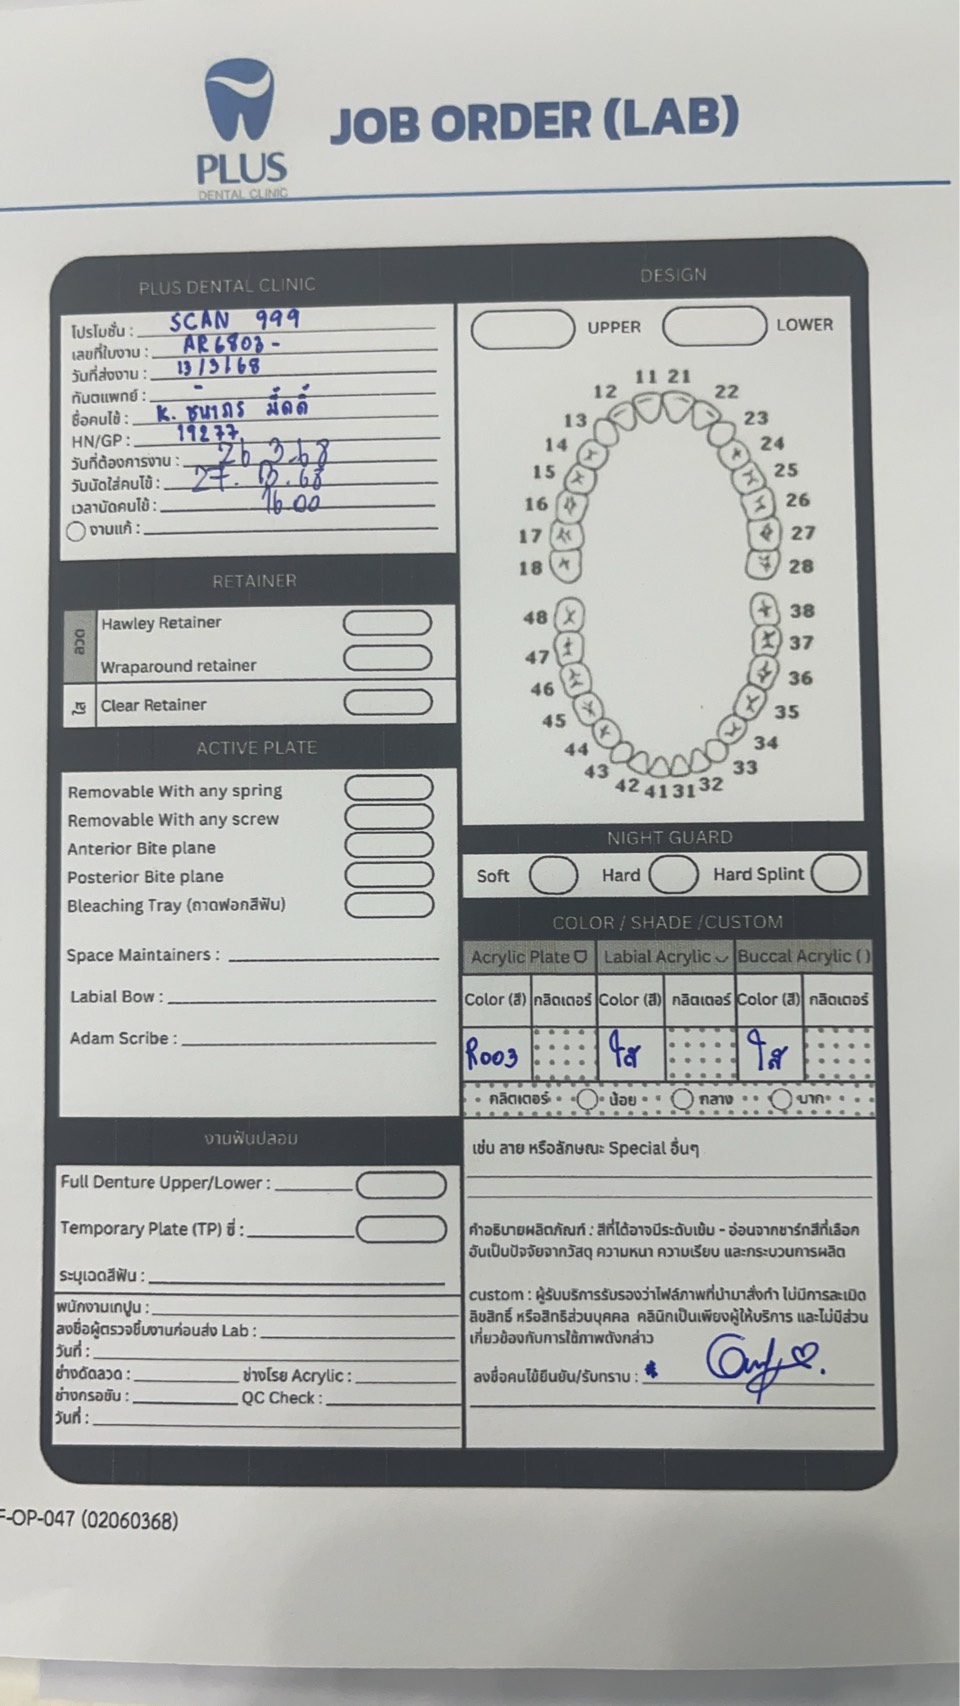 PLUS
DENTAL CLINIC
JOB ORDER (LAB)
PLUS DENTAL CLINIC
โปรโมชั่น : SCAN 999
เลขที่ใบงาน : AR6803-
วันที่ส่งงาน : 13/3/68
ทันตแพทย์ : -
ชื่อคนไข้ : K. ชนาภร
HN/GP : 19277
วันที่ต้องการงาน : 26.3.68
วันนัดใส่คนไข้ : 27. .68
เวลานัดคนไข้ : 16.00
งานแก้ :
RETAINER
ลวด
Hawley Retainer
Wraparound retainer
ใส
Clear Retainer
ACTIVE PLATE
Removable With any spring
Removable With any screw
Anterior Bite plane
Posterior Bite plane
Bleaching Tray (ถาดฟอกสีฟัน)
Space Maintainers :
Labial Bow :
Adam Scribe :
งานฟันปลอม
Full Denture Upper/Lower :
Temporary Plate (TP) ซี่ :
ระบุเฉดสีฟัน :
พนักงานเทปูน :
ลงชื่อผู้ตรวจชิ้นงานก่อนส่ง Lab :
วันที่ :
ช่างดัดลวด : ช่างโรย Acrylic :
ช่างกรอขัน : QC Check :
วันที่ :
DESIGN
UPPER LOWER
11 21
12 22
13 23
14 24
15 25
16 26
17 27
18 28
48 38
47 37
46 36
45 35
44 34
43 33
42 41 31 32
NIGHT GUARD
Soft Hard Hard Splint
COLOR / SHADE /CUSTOM
Acrylic Plate Labial Acrylic Buccal Acrylic ( )
Color (สี) กลิตเตอร์ Color (สี) กลิตเตอร์ Color (สี) กลิตเตอร์
R003 ใส ใส
กลิตเตอร์ น้อย กลาง มาก
เช่น ลาย หรือลักษณะ Special อื่นๆ
คำอธิบายผลิตภัณฑ์ : สีที่ได้อาจมีระดับเข้ม - อ่อนจากชาร์ทสีที่เลือก
อันเป็นปัจจัยจากวัสดุ ความหนา ความเรียบ และกระบวนการผลิต
custom : ผู้รับบริการรับรองว่าไฟล์ภาพที่นำมาสั่งทำ ไม่มีการละเมิด
ลิขสิทธิ์ หรือสิทธิส่วนบุคคล คลินิกเป็นเพียงผู้ให้บริการ และไม่มีส่วน
เกี่ยวข้องกับการใช้ภาพดังกล่าว
ลงชื่อคนไข้ยืนยัน/รับทราบ :
F-OP-047 (02060368)